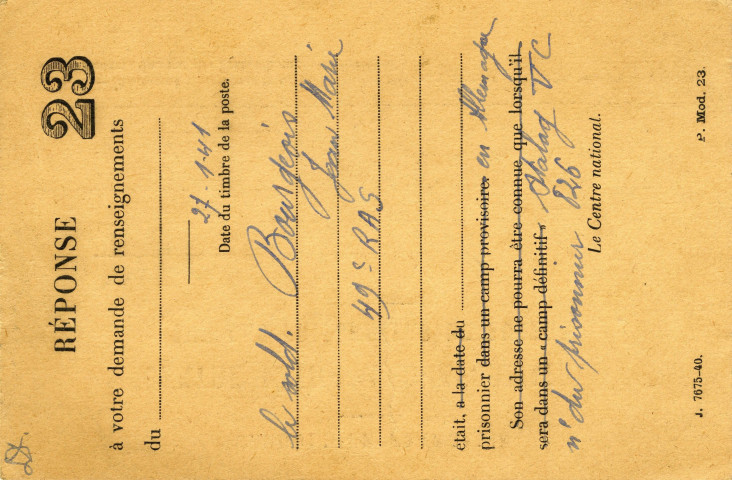 RÉPONSE 23
à votre demande de renseignements
du
27-1-41
Date du timbre de la poste.
le sold. Bourgeois
Jean Marie
49e RAS
était, a la date du
prisonnier dans un camp provisoire. en Allemagne
Son adresse ne pourra être connue que lorsqu'il
sera dans un « camp définitif » Stalag V C
n° du prisonnier 826
Le Centre national.
J. 7675-40.
P. Mod. 23.